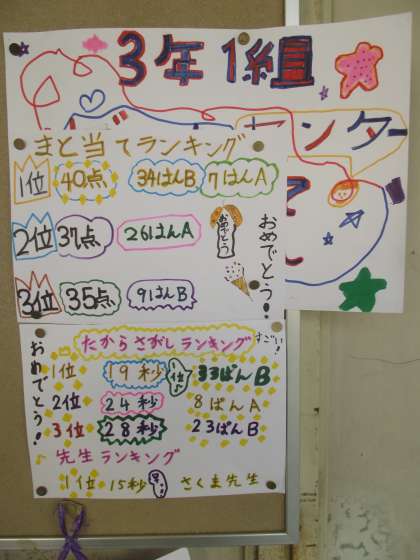 3年1組
まと当てランキング
1位 40点 34はんB 7はんA
2位 37点 26はんA
3位 35点 9はんB
おめでとう
おめでとう!
たからさがしランキング
すごい!
おめでとう!
1位 19秒 1位! 33ぱんB
2位 24秒 8ぱんA
3位 28秒 23ぱんB
先生ランキング
1位 15秒 さくま先生